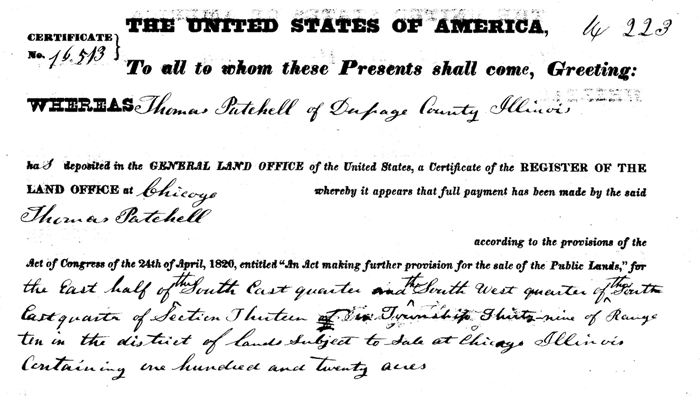 THE UNITED STATES OF AMERICA,
223
CERTIFICATE
No. 16.513
To all to whom these Presents shall come, Greeting:
WHEREAS Thomas Patchell of Dupage County Illinois
haS deposited in the GENERAL LAND OFFICE of the United States, a Certificate of the REGISTER OF THE
LAND OFFICE at Chicago whereby it appears that full payment has been made by the said
Thomas Patchell
according to the provisions of the
Act of Congress of the 24th of April, 1820, entitled "An Act making further provision for the sale of the Public Lands," for
the East half of the South East quarter and the South West quarter of the South
East quarter of Section Thirteen in Township Thirty nine of Range
ten in the district of lands subject to sale at Chicago Illinois
Containing one hundred and twenty acres